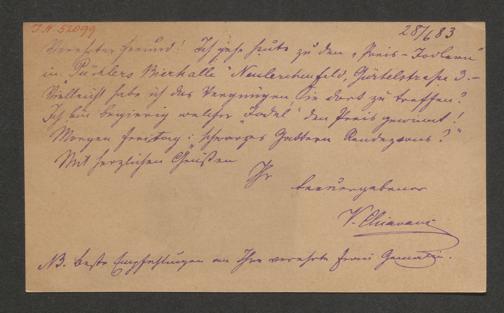 I.N. 52099
28/6 83
Verehrter Freund! Ich gehe heute zu den „Preis-Jodlern"
in „Pächlers Bierhalle" Neulerchenfeld, Gürtelstraße 3.-
Vielleicht habe ich das Vergnügen Sie dort zu treffen?
Ich bin begierig welcher „Jodel" den Preis gewinnt!
Morgen Freitag: schwarzes Gattern Rendezvous?"
Mit herzlichen Grüßen
Ihr
treuergebener
V. Chiavacci
NB. beste Empfehlungen an Ihre verehrte Frau Gemalin.